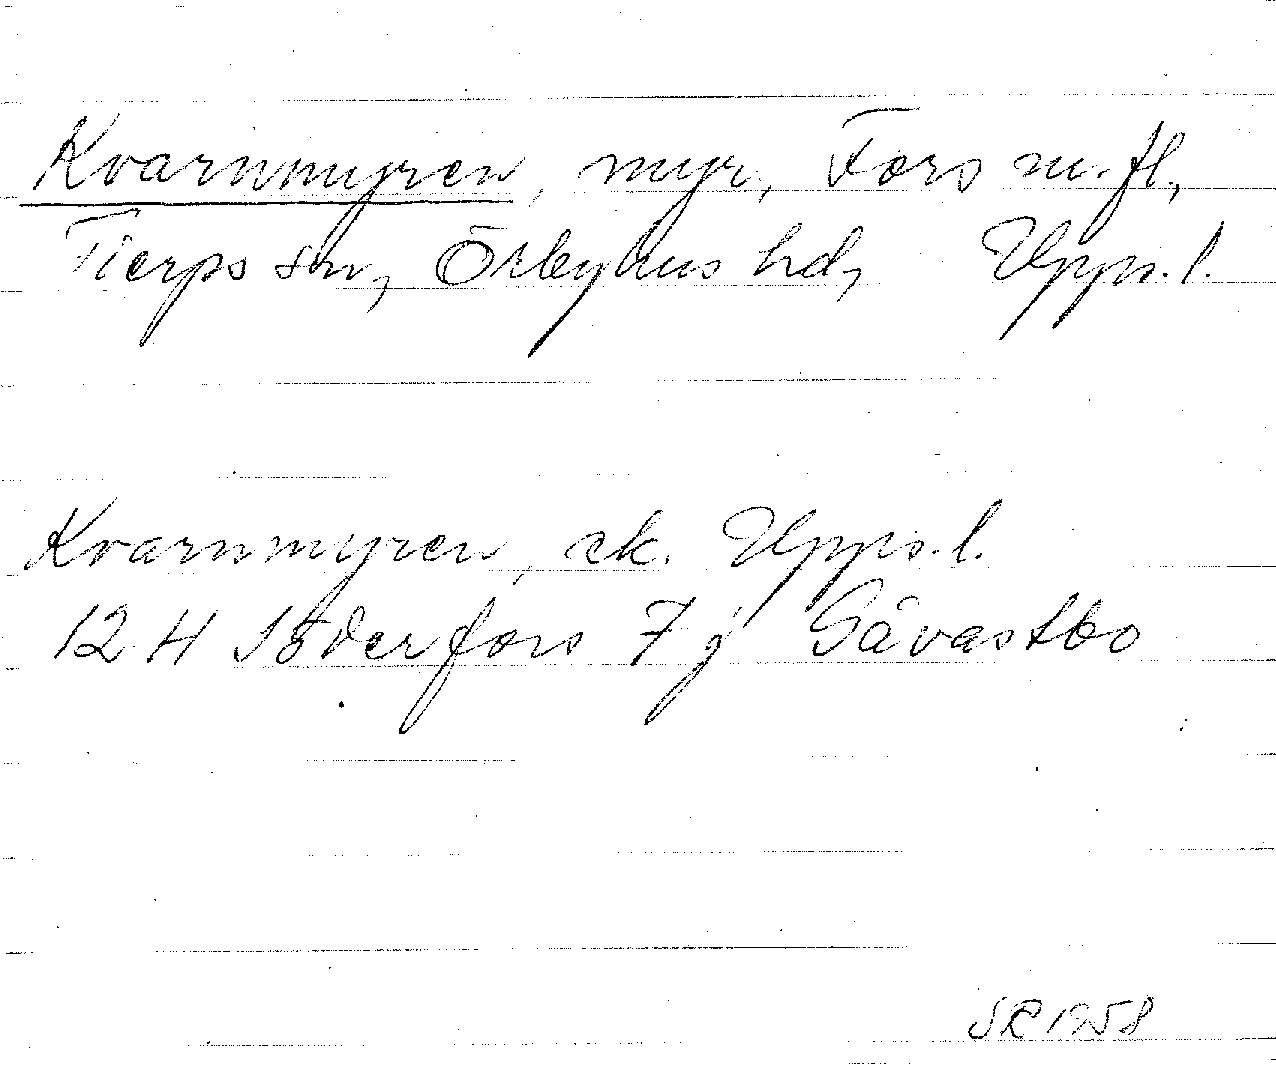 Kvarnmyren, myr, Fors m.fl,
Tierps sn, Örbyhus hd, Upps. l.
Kvarnmyren, ek. Upps. l.
12 H Söderfors 7 j Sävastbo
SR 1958